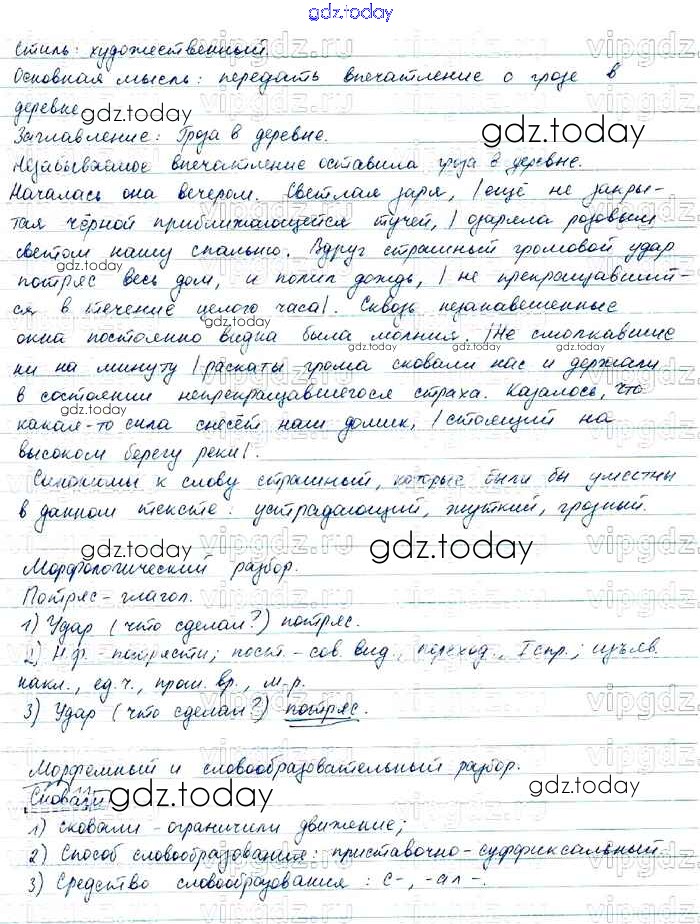 gdz.today
Стиль: художественный.
Основная мысль: передать впечатление о грозе в
деревне
Заглавление: Гроза в деревне.
Незабываемое впечатление оставила гроза в деревне.
Началась она вечером. Светлая заря, |ещё не закры-
тая чёрной приближающейся тучей,| озаряла розовым
светом нашу спальню. Вдруг страшный громовой удар
потряс весь дом, и полил дождь, | не прекращавший-
ся в течение целого часа|. Сквозь незанавешенные
окна постоянно видна была молния. |Не смолкавшие
ни на минуту | раскаты грома сковали нас и держали
в состоянии непрекращавшегося страха. Казалось, что
какая-то сила снесёт наш домик, | стоящий на
высоком берегу реки|.
Синонимы к слову страшный, которые были бы уместны
в данном тексте: устрашающий, жуткий, грозный.
Морфологический разбор.
Потряс - глагол.
1) Удар (что сделал?) потряс.
2) Н.ф. - потрясти; пост. - сов. вид., переход., I спр.; изъяв.
накл., ед. ч., прош. вр., м.р.
3) Удар (что сделал?) потряс.
Морфемный и словообразовательный разбор.
Сковали
1) сковали - ограничили движение;
2) Способ словообразования: приставочно-суффиксальный.
3) Средство словообразования: с-, -ал-.